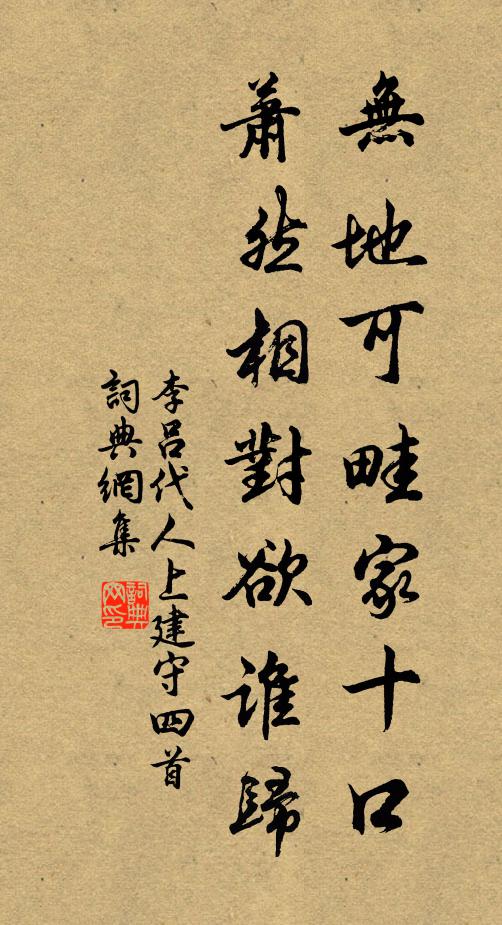 無地可畦家十口
蕭然相對欲誰歸
李呂代人上建守四首
詞典網集
詞典网印